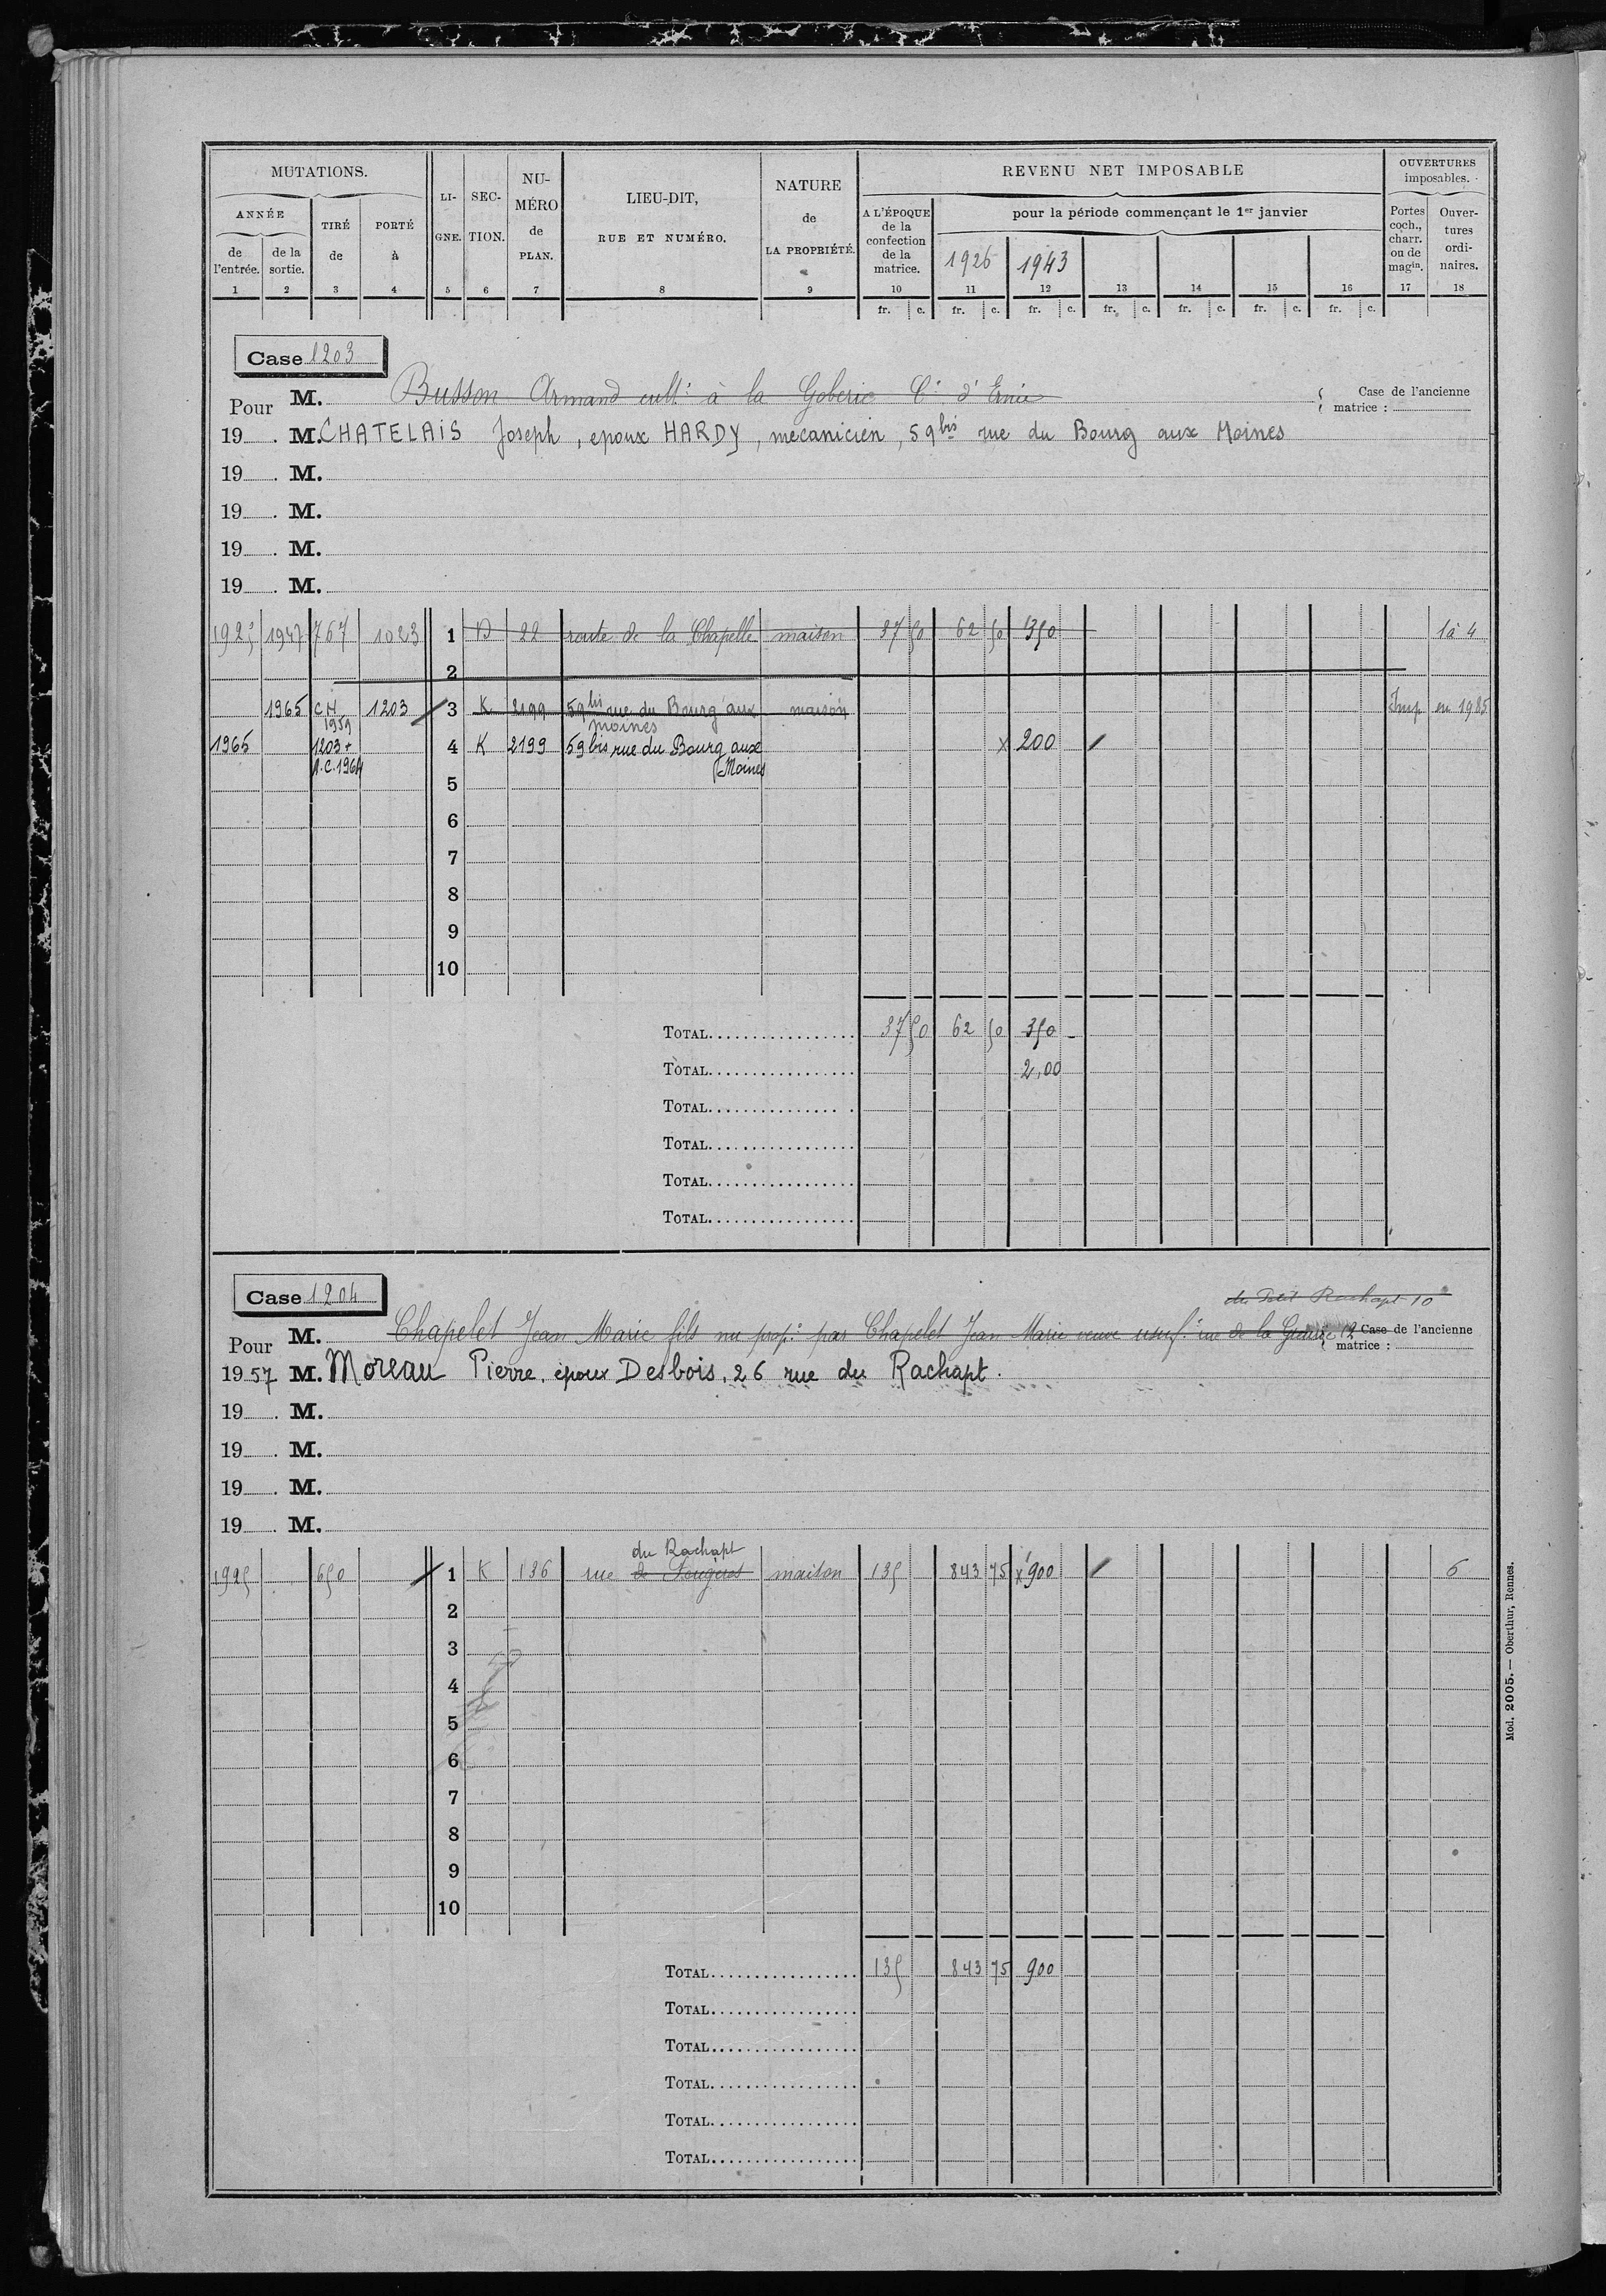 MUTATIONS.
ANNÉE
de l'entrée.
de la sortie.
TIRÉ de
PORTÉ à
LI-GNE.
SEC-TION.
NU-MÉRO de PLAN.
LIEU-DIT,
RUE ET NUMÉRO.
NATURE
de
LA PROPRIÉTÉ.
REVENU NET IMPOSABLE
A L'ÉPOQUE de la confection de la matrice.
pour la période commençant le 1er janvier
1926 1943
OUVERTURES imposables.
Portes coch., charr. ou de magin.
Ouver-tures ordi-naires.
1 2 3 4 5 6 7 8 9 10 11 12 13 14 15 16 17 18
fr. c. fr. c. fr. c. fr. c. fr. c. fr. c. fr. c.
Case 1203
Pour M. Busson Armand cultr à la Goberie Cne d'Ernée
Case de l'ancienne matrice :
19 . M. CHATELAIS Joseph, epoux HARDY, mecanicien, 59bis rue du Bourg aux Moines
19 . M.
19 . M.
19 . M.
19 . M.
1925 1947 767 1023 1 22 route de la Chapelle maison 37 50 62 50 350 1à 4
2
1965 CH 1959 1203 3 K 2199 59bis rue du Bourg aux moines maison Imp en 1985
1965 1203 + N.C. 1964 4 K 2199 59 bis rue du Bourg aux Moines x 200
5
6
7
8
9
10
TOTAL 37 50 62 50 350
TOTAL 2,00
TOTAL
TOTAL
TOTAL
TOTAL
Case 1204
du Petit Rachapt 10
Pour M. Chapelet Jean Marie fils nu propre par Chapelet Jean Marie veuve usuf. rue de la 12
Case de l'ancienne matrice :
1957 M. Moreau Pierre, époux Desbois, 26 rue du Rachapt.
19 . M.
19 . M.
19 . M.
19 . M.
du Rachapt
1925 650 1 K 136 rue de Fougères maison 135 843 75 x 900 6
2
3
4
5
6
7
8
9
10
TOTAL 135 843 75 900
TOTAL
TOTAL
TOTAL
TOTAL
TOTAL
Mod. 2005. — Oberthur, Rennes.